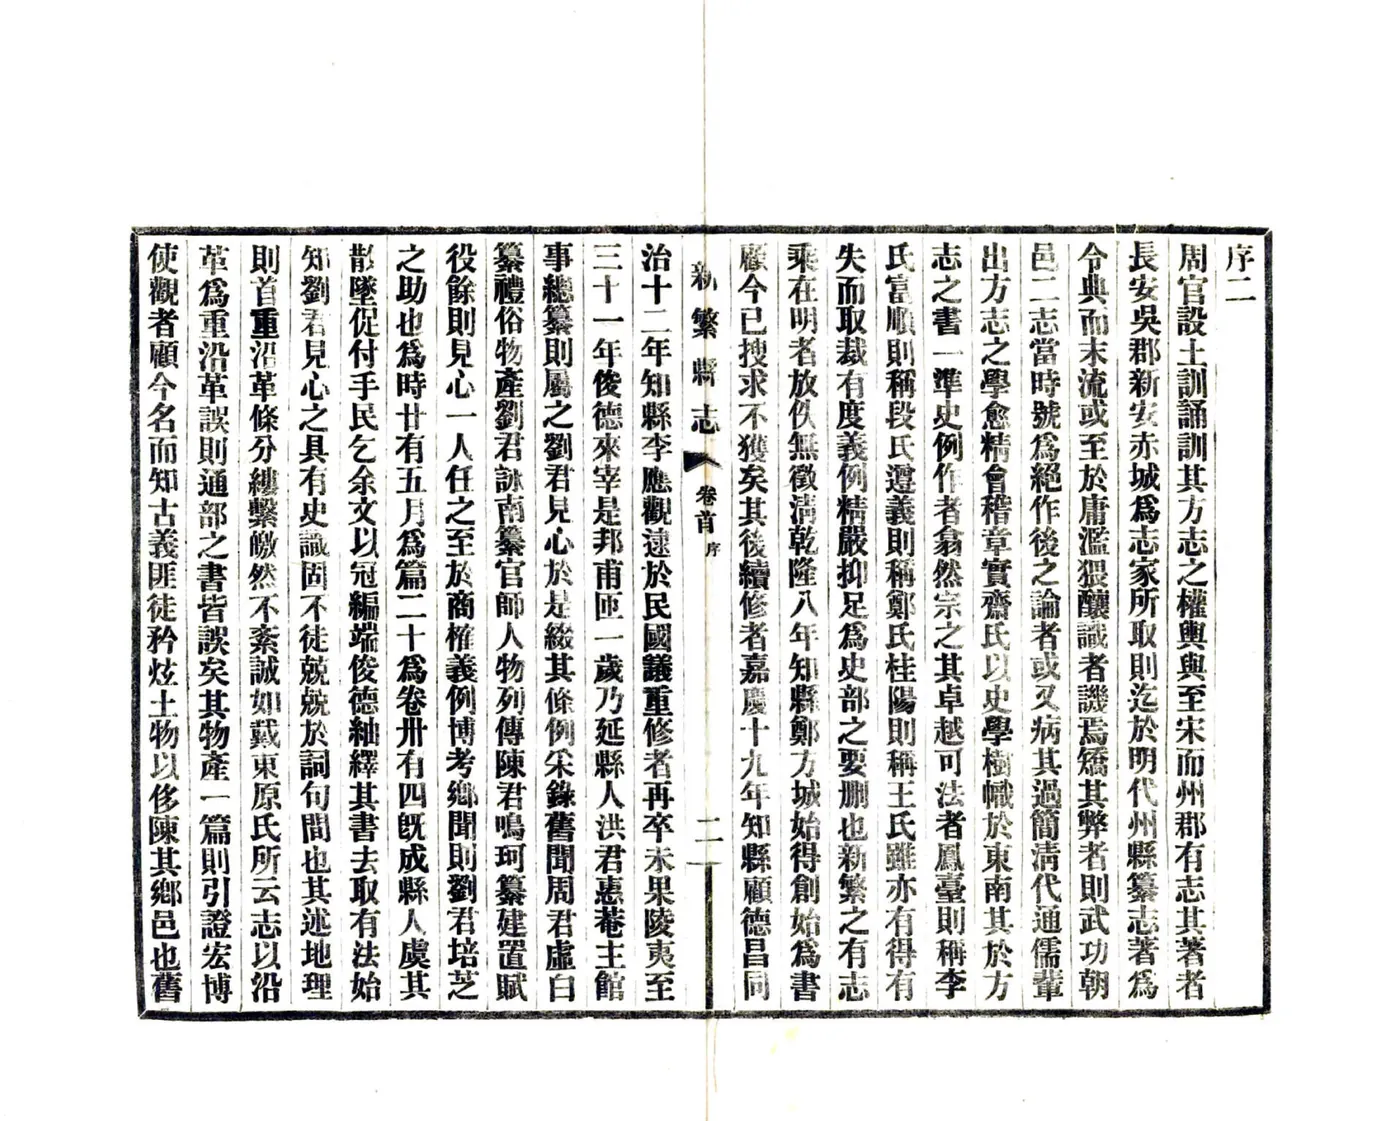 序二
周官設土訓誦訓其方志之權輿與至宋而州郡有志其著者
長安吳郡新安赤城爲志家所取則迄於明代州縣纂志著爲
令典而末流或至於庸濫猥釀識者譏焉矯其弊者則武功朝
邑二志當時號爲絕作後之論者或又病其過簡清代通儒輩
出方志之學愈精會稽章實齋氏以史學樹幟於東南其於方
志之書一準史例作者翕然宗之其卓越可法者鳳臺則稱李
氏富順則稱段氏遵義則稱鄭氏桂陽則稱王氏雖亦有得有
失而取裁有度義例精嚴抑足爲史部之要刪也新繁之有志
乘在明者放佚無徵清乾隆八年知縣鄭方城始得創始爲書
顧今已搜求不獲矣其後續修者嘉慶十九年知縣顧德昌同
新繁縣志 卷首 序 二
治十二年知縣李應觀逮於民國議重修者再卒未果陵夷至
三十一年俊德來宰是邦甫匝一歲乃延縣人洪君惪菴主館
事總纂則屬之劉君見心於是綴其條例采錄舊聞周君虛白
纂禮俗物產劉君詠南纂官師人物列傳陳君鳴珂纂建置賦
役餘則見心一人任之至於商榷義例博考鄉聞則劉君培芝
之助也爲時廿有五月爲篇二十爲卷卅有四旣成縣人虞其
散墜促付手民乞余文以冠編端俊德紬繹其書去取有法始
知劉君見心之具有史識固不徒兢兢於詞句間也其述地理
則首重沿革條分縷繫皦然不紊誠如戴東原氏所云志以沿
革爲重沿革誤則通部之書皆誤矣其物產一篇則引證宏博
使觀者顧今名而知古義匪徒矜炫土物以侈陳其鄉邑也舊